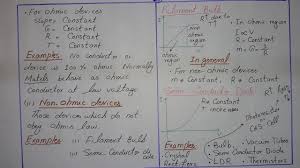 • For ohmic devices
slope Constant
G = Constant
R = Constant
T = Constant
Examples No conductor or
device is 100% ohmic Normally
Metals behave as ohmic
Conductor at low voltage
(ii) Non Ohmic devices
Those devices which do not
obey ohmic law.
Examples (i) Filament Bulb
(ii) Semi Conductor diode
Filament Bulb
R↑ due
to T↑
• In ohmic region
I ∝ V
R = Constant
ohmic
region
Non
ohmic
region
In general
• For non-ohmic devices
m ≠ Constant
Semi Conductor Diode
R ≠ Constant
Examples
• Bulb
• Vacuum Tubes
• Semi Conductor Diode
• LDR
• Thermistors
• Crystal
Rectifiers